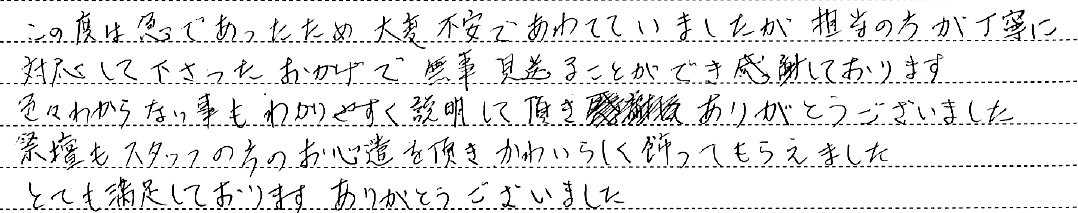 この度は急であったため 大変不安であわてていましたが 担当の方が丁寧に
対応して下さったおかげで 無事見送ることができ感謝しております
色々わからない事もわかりやすく説明して頂き ありがとうございました
祭壇もスタッフの方のお心遣を頂きかわいらしく飾ってもらえました
とても満足しております ありがとうございました